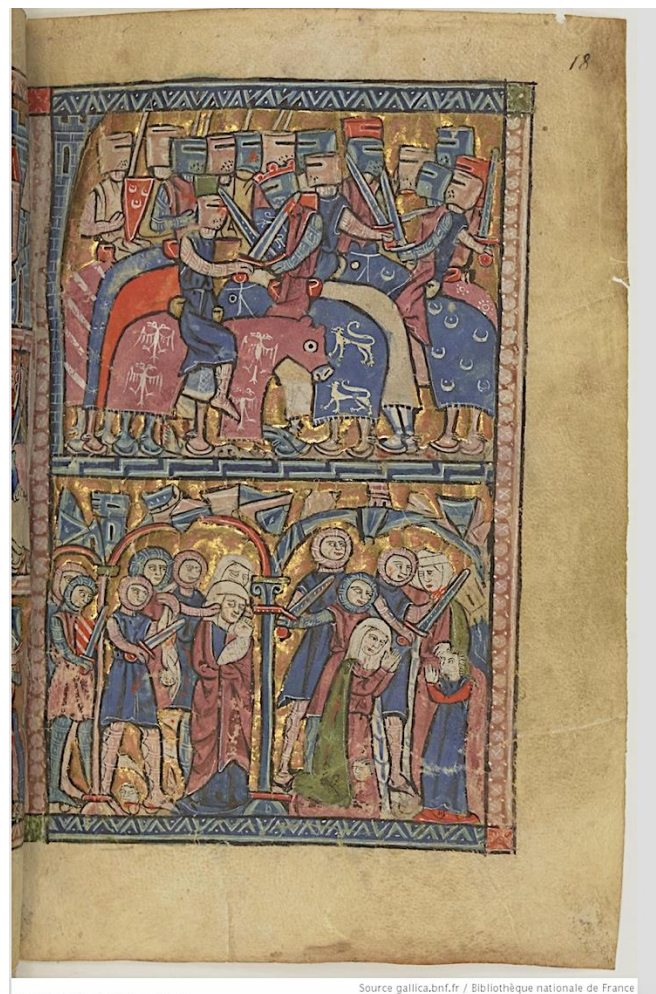 18
Source gallica.bnf.fr / Bibliothèque nationale de France